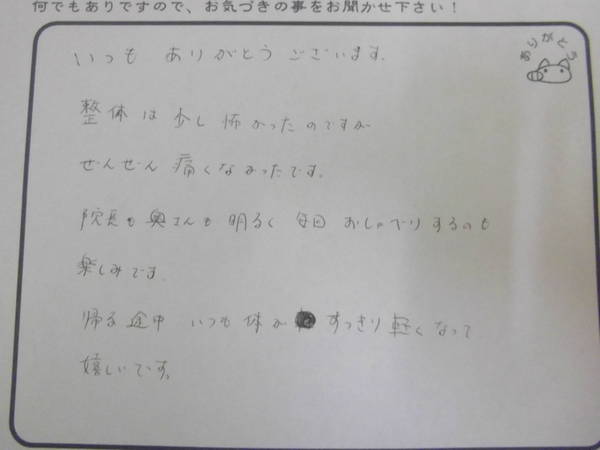 何でもありですので、お気づきの事をお聞かせ下さい！
ありがとう
いつも ありがとう ございます。
整体は少し怖かったのですが
ぜんぜん 痛くなかったです。
院長も奥さんも 明るく 毎回 おしゃべりするのも
楽しみです。
帰る途中 いつも体が すっきり軽くなって
嬉しいです。